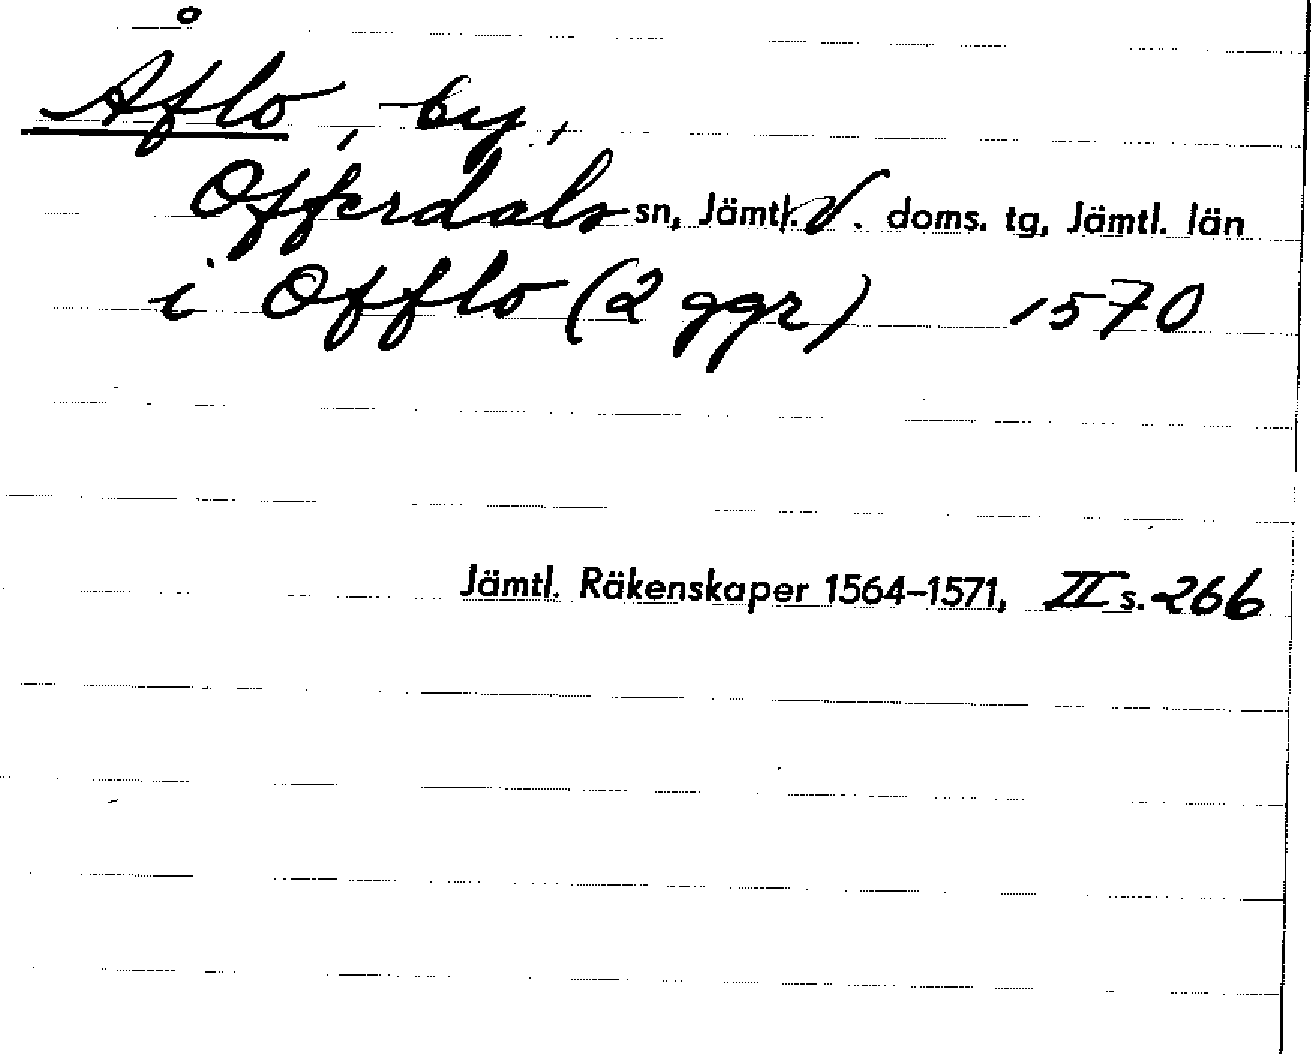 Åflo, by,
Offerdals sn, Jämtl. V. doms. tg, Jämtl. län
i Offlo (2 ggr) 1570
Jämtl. Räkenskaper 1564–1571, II s. 266